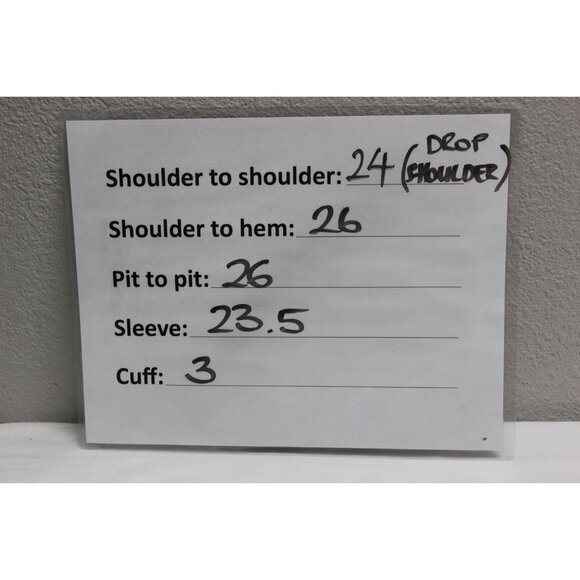 Shoulder to shoulder: 24 (DROP SHOULDER)
Shoulder to hem: 26
Pit to pit: 26
Sleeve: 23.5
Cuff: 3